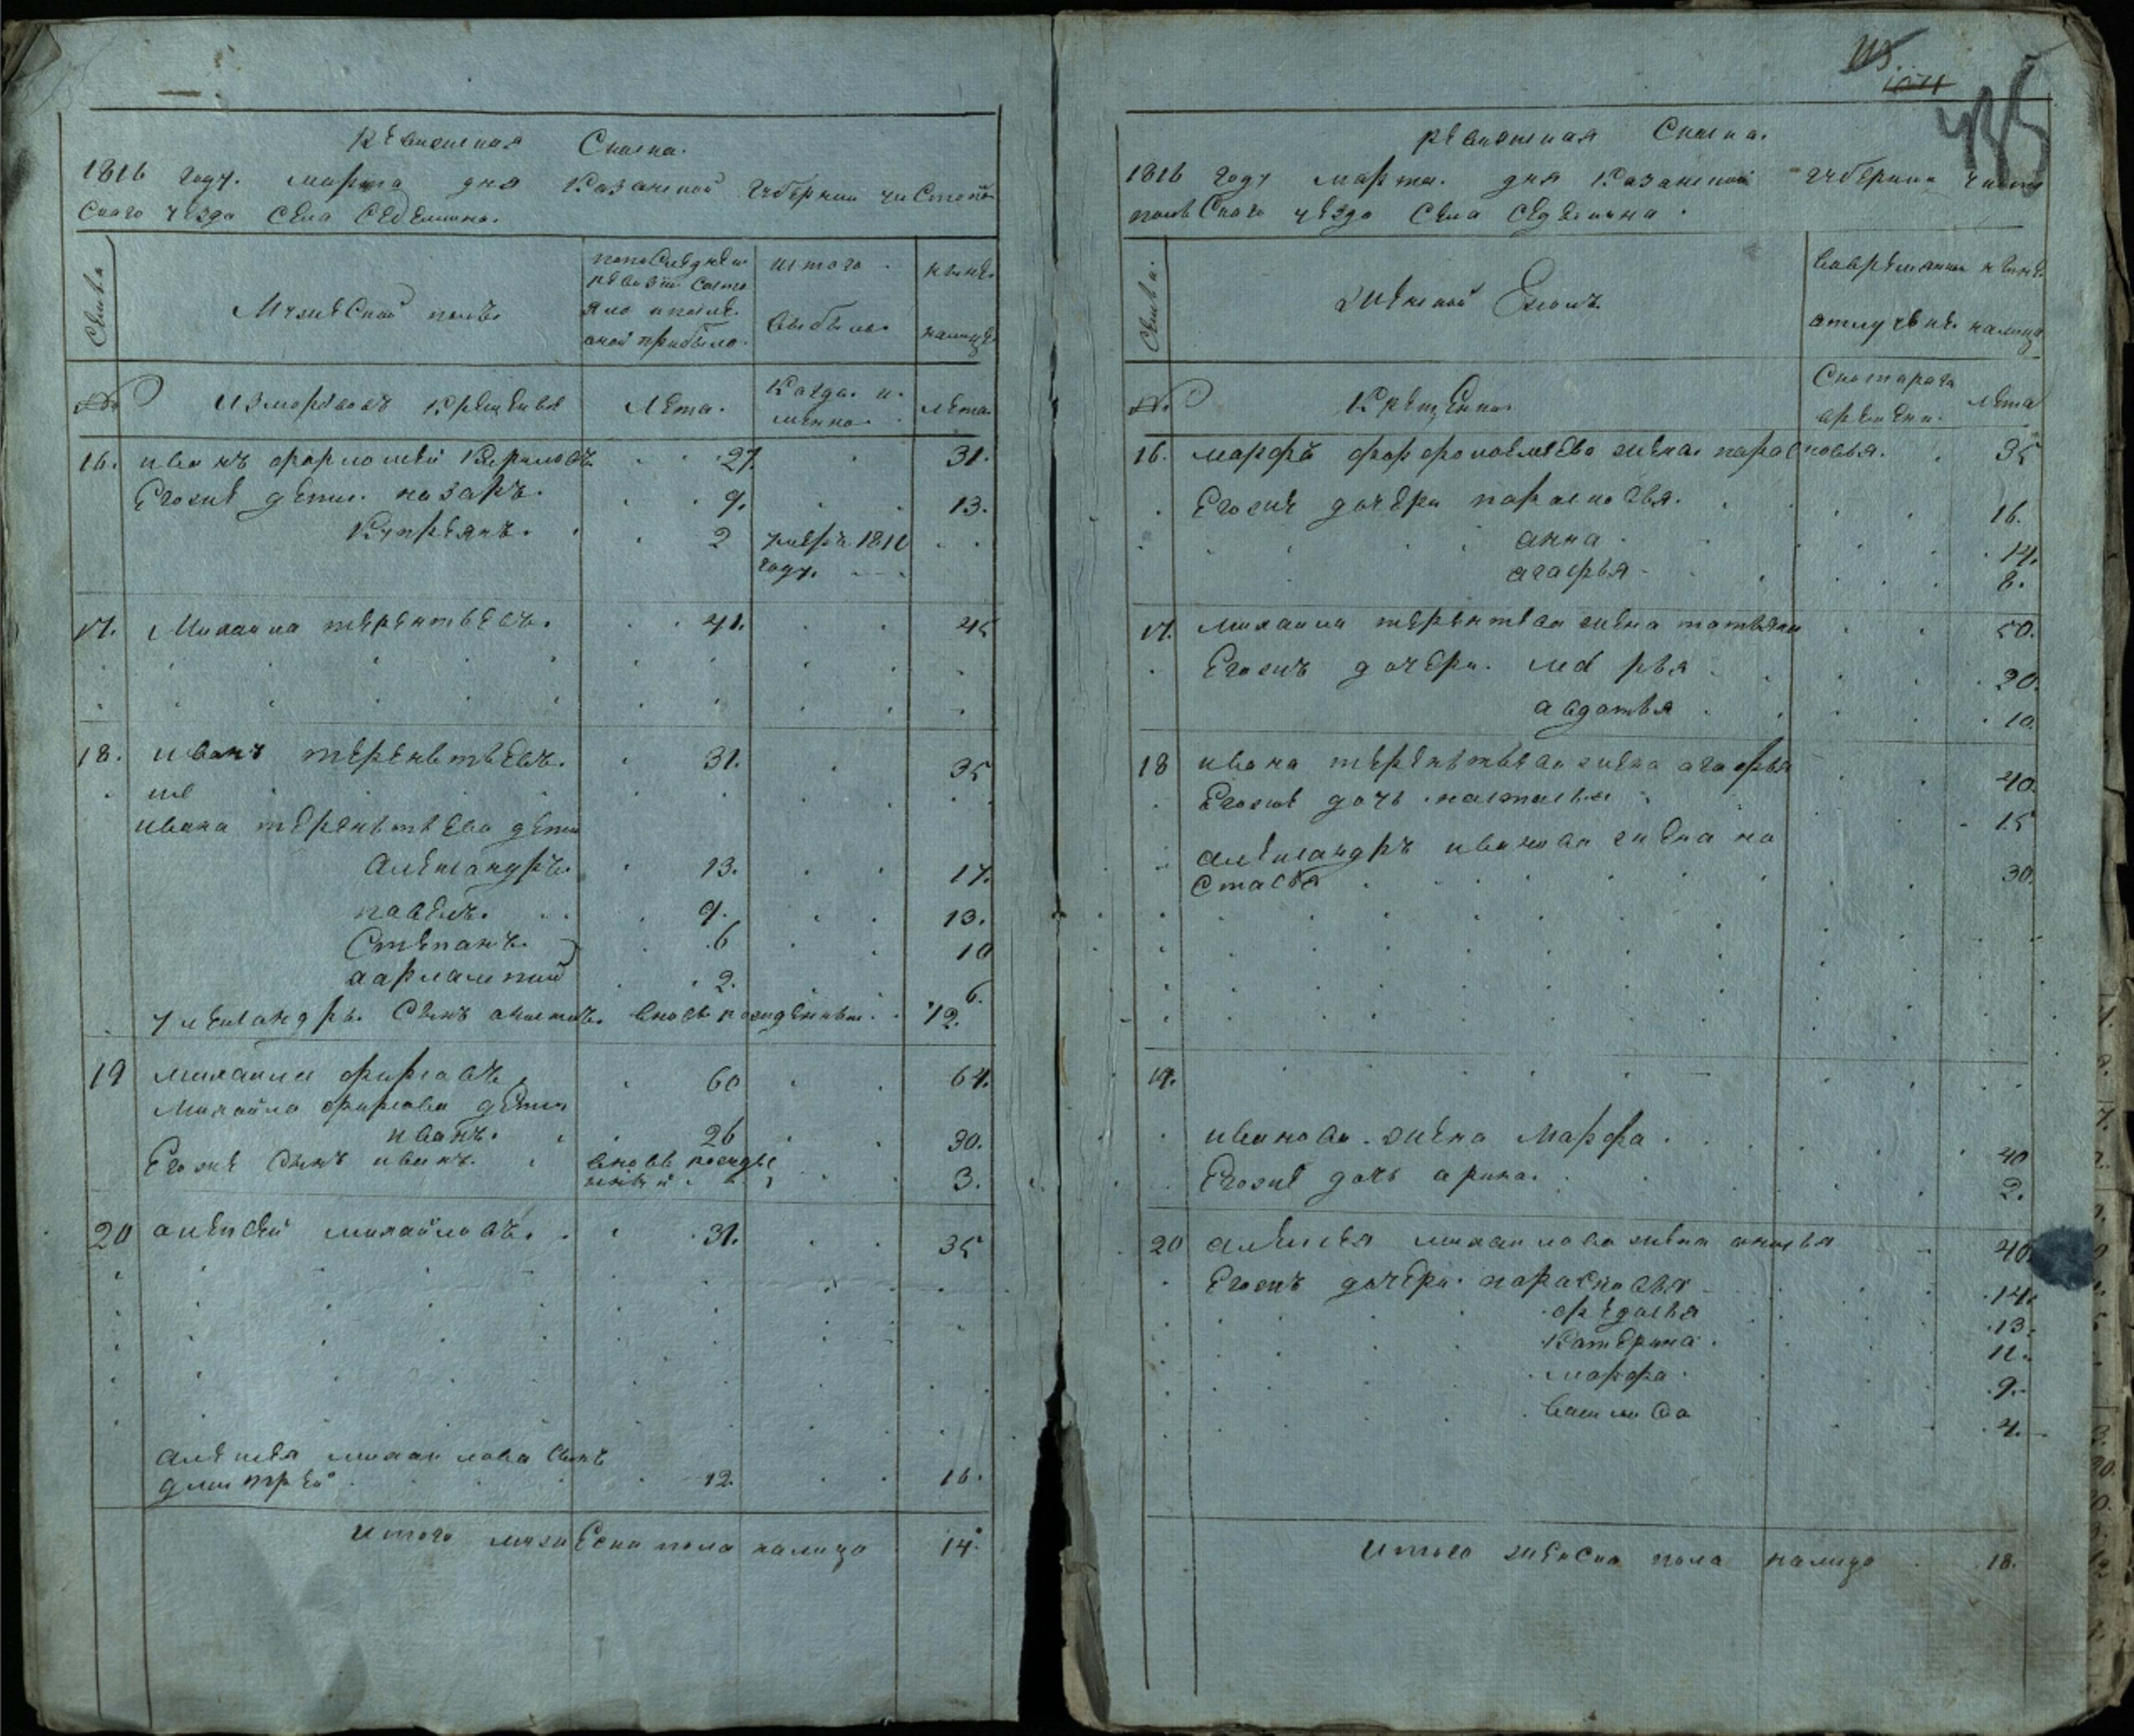 Ревизская Скаска.
1816 году. марта дня Казанской Губернии чистопо
Скаго уезда села
Семьи
Мужеской полъ
по последней
ревизии состо
яло и после
оной прибыло.
истого
выбыло.
ныне
налицо
№
из мордовъ крещеныя
Лета.
Когда и
мянно
лета
16. иванъ 27 31.
Егожъ дети. назаръ. 9. 13.
Купреянъ. 2 умеръ 1811
году.
17. Михаила терентьевъ. 41. 45
18. иванъ терентьевъ. 31. 35
ивана терентьева дети
Александръ. 13. 17.
павелъ. 9. 13.
Степанъ. 6 10
2. 6.
Сынъ вновь рожденный. 12.
19 михаила фирсовъ 60 64.
Михайла фирсова дети
иванъ. 26 30.
Егоже Сынъ иванъ. вновь рожде
нный 3.
20 алексей михайловъ. 31. 35
алексея михайлова Сынъ
дмитрей 12. 16.
итого мужеска пола налицо 14
115
1071
435
ревизская Скаска.
1816 году марта. дня Казанской губернии чисто
польскаго уезда села
Семьи.
Женской полъ
вовремянной
отлучке
ныне
налицо
№
Крещенна
Скотораго
времени.
лета
16. жена парасковья. 35
Егожъ дочери парасковья. 16.
анна 14.
агафья 8.
17. михаила терентьева жена татьяна 50.
Егожъ дочери. марья 20.
авдотья 10.
18 ивана терентьева жена агафья 40.
Егоже дочь настасья 15
александръ иванова жена на
стасья 30.
19.
иванова жена Марфа. 40
Егоже дочь арина. 2.
20 алексея михайлова жена анисья 40.
Егожъ дочери парасковья 14.
федосья 13.
Катерина 11.
марфа 9.
василиса 4.
Итого женска пола налицо 18.